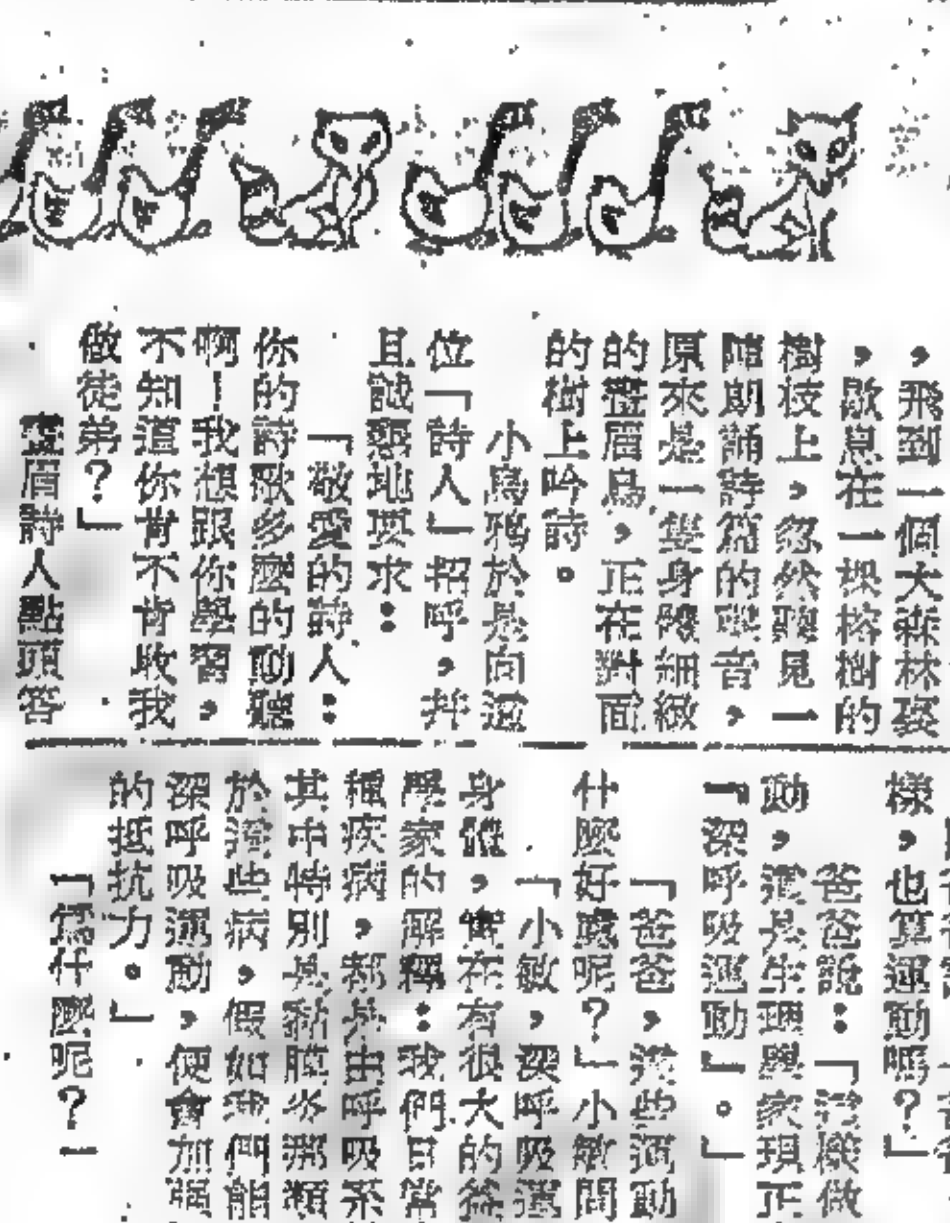 ，飛到一個大森林裏
，歇息在一棵榕樹的
樹枝上，忽然聽見一
陣朗誦詩篇的聲音，
原來是一隻身體細緻
的畫眉鳥，正在對面
的樹上吟詩。
小烏鴉於是向這
位「詩人」招呼，幷
且誠懇地要求：
「敬愛的詩人：
你的詩歌多麼的動聽
啊！我想跟你學習，
不知道你肯不肯收我
做徒弟？」
畫眉詩人點頭答
樣，也算運動嗎？」
爸爸說：「這樣做
動，這是生理學家現正
『深呼吸運動』。」
「爸爸，這些運動
什麼好處呢？」小敏問
「小敏，深呼吸運
身體，實在有很大的益
學家的解釋：我們日常
種疾病，都是由呼吸系
其中特別是黏膜炎那類
於這些病，假如我們能
深呼吸運動，便會加强
的抵抗力。」
「爲什麼呢？」